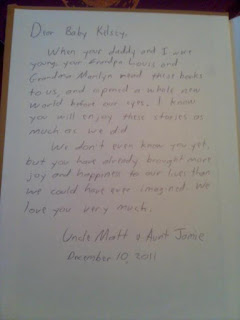 Dear Baby Kelssy,
When your daddy and I were
young, your Grandpa Louis and
Grandma Marilyn read these books
to us, and opened a whole new
world before our eyes. I know
you will enjoy these stories as
much as we did.
We don't even know you yet,
but you have already brought more
joy and happiness to our lives than
we could have ever imagined. We
love you very much.
Uncle Matt & Aunt Jamie
December 10, 2011